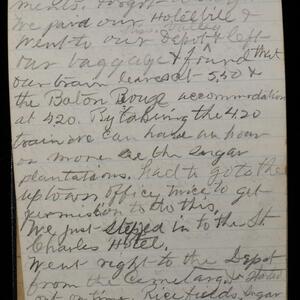 We paid our Hotel bill &
went to our Depot & left
our baggage & found that
our train leaves at 5,40 &
the Baton Rouge accommodation
at 420. By taking the 4.20
train we can have an hour
or more see the sugar
plantations. had to go to the
uptown office twice to get
permission to do this,
We just stepped in to the St.
Charles Hotel.
Went right to the Depot
from the Cemetary &
out on time. Rice fields, Sugar